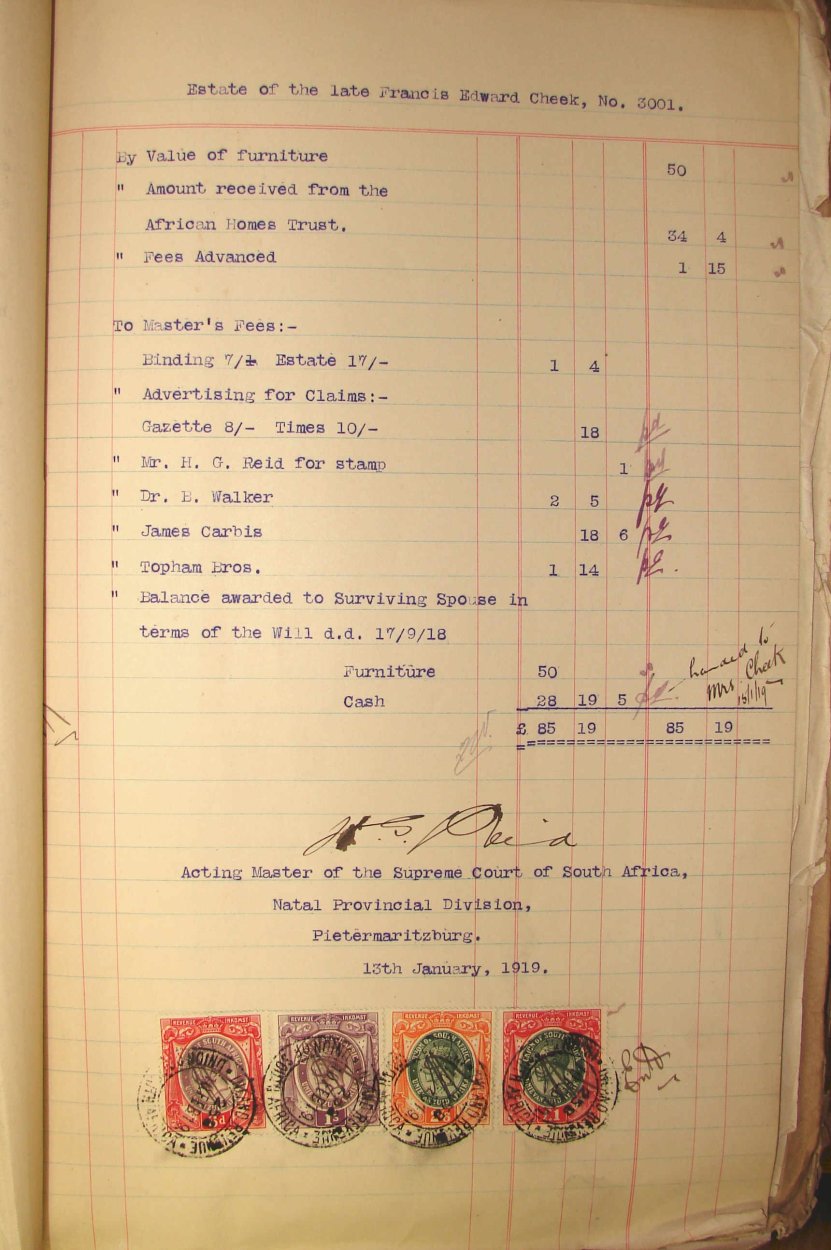 Estate of the late Francis Edward Cheek, No. 3001.
By Value of furniture 50
" Amount received from the
African Homes Trust. 34 4
" Fees Advanced 1 15
To Master's Fees:-
Binding 7/- Estate 17/- 1 4
" Advertising for Claims:-
Gazette 8/- Times 10/- 18 pd
" Mr. H. G. Reid for stamp 1 pd
" Dr. B. Walker 2 5 pd
" James Carbis 18 6 pd
" Topham Bros. 1 14 pd.
" Balance awarded to Surviving Spouse in
terms of the Will d.d. 17/9/18
Furniture 50
Cash 28 19 5
handed to
Mrs Cheek
15/1/19
£ 85 19 85 19
H. G. Reid
Acting Master of the Supreme Court of South Africa,
Natal Provincial Division,
Pietermaritzburg.
13th January, 1919.
REVENUE INKOMST REVENUE INKOMST REVENUE INKOMST REVENUE INKOMST